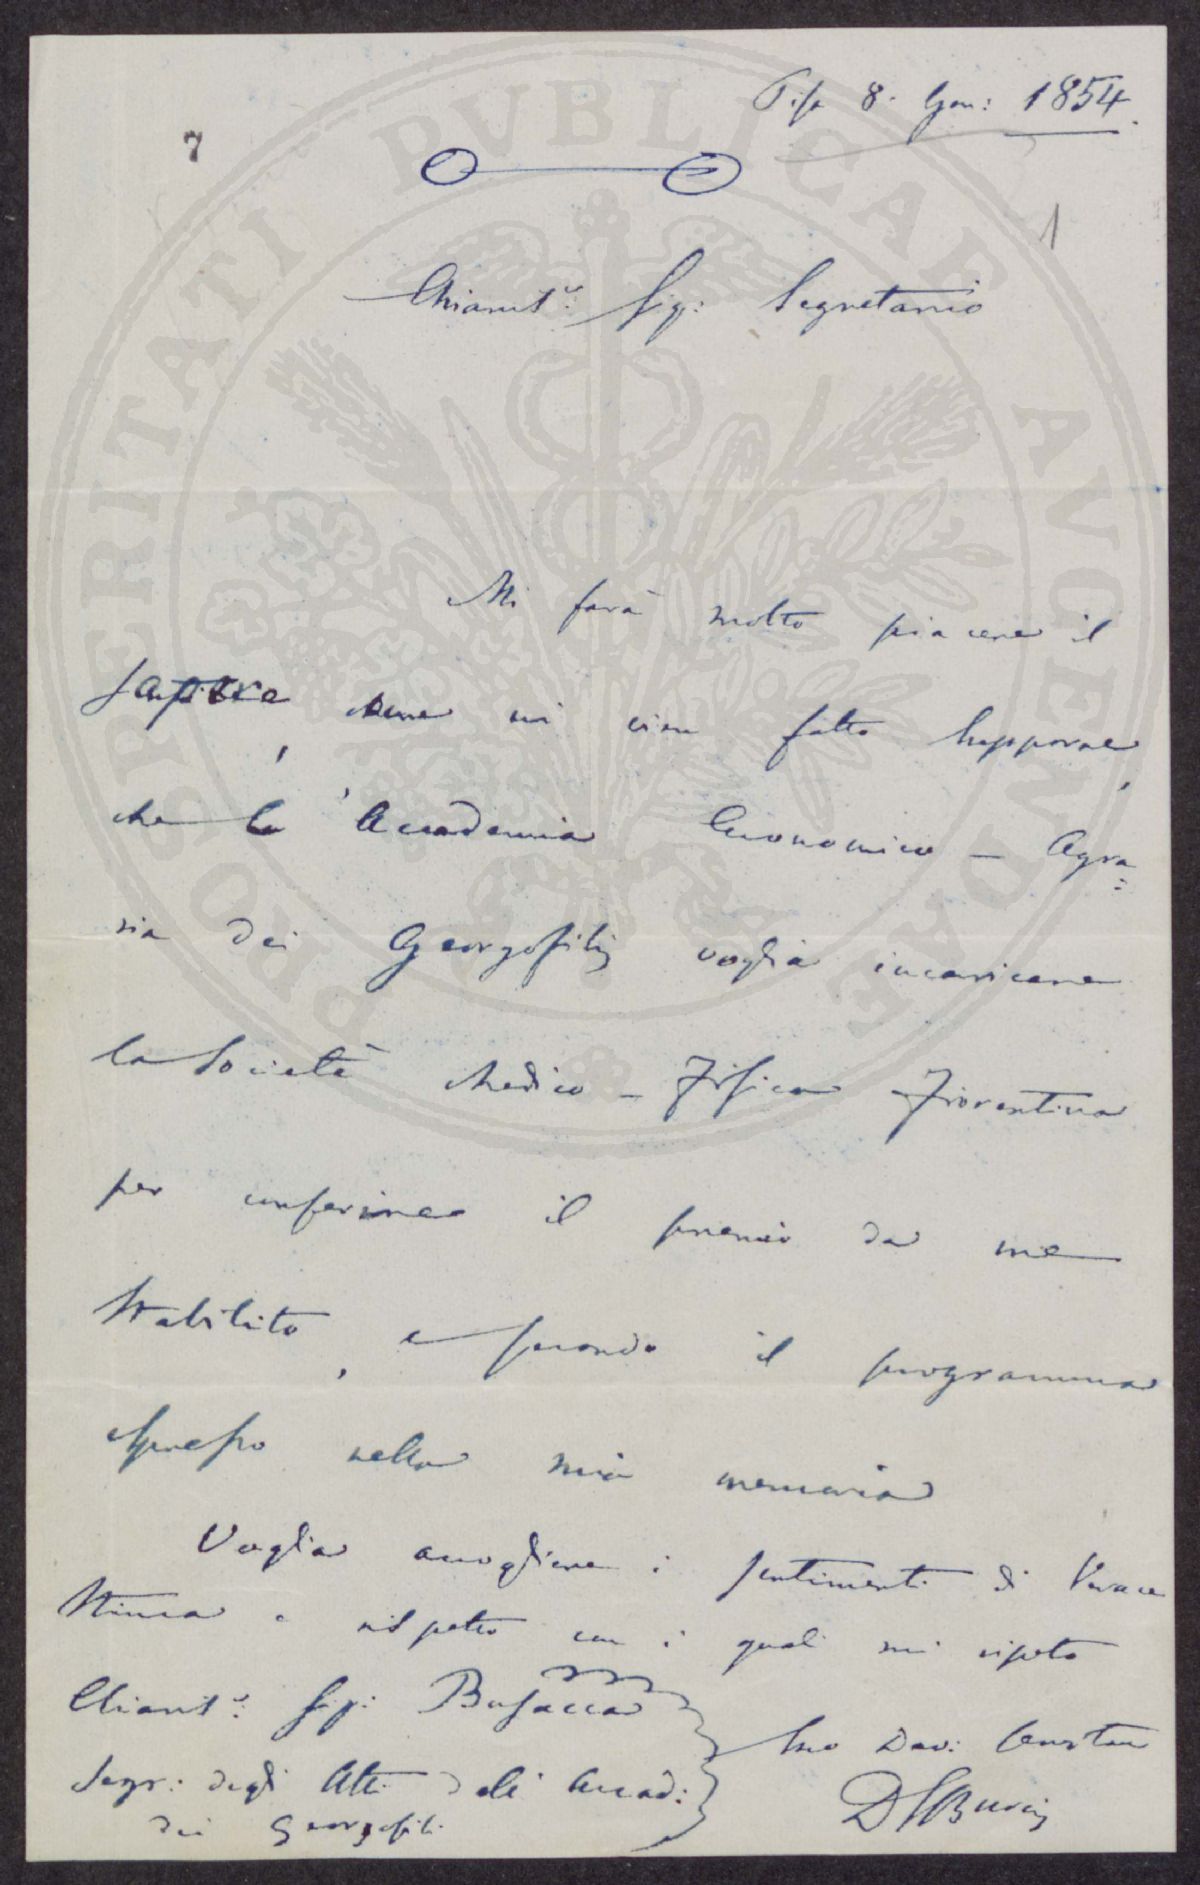 Pisa 8. Gen: 1854.
7
1
ChiarisS.º Sig: Segretario
Mi farà molto piacere il
sapere, come mi vien fatto supporre,
che l'Accademia Economico - Agra=
ria dei Georgofili voglia incaricare
la Società Medico - Fisica Fiorentina
per conferire il premio da me
stabilito, e secondo il programma
espresso nella mia memoria
Voglia accogliere i sentimenti di verace
stima e rispetto con i quali mi ripeto
Sig: Busacca
Segr: degli Atti dell' Accad:
dei Georgofili
Suo Dev:
PROSPERITATI PVBLICAE AVGENDAE